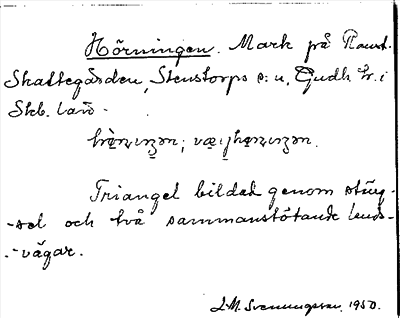 Hörningen. Mark på
Skattegården, Stenstorps s:n, Gudh. hr. i
Skb. län.
Triangel bildad genom stäng-
-sel och två sammanstötande lands-
-vägar.
J.M. Svenungsson, 1950.